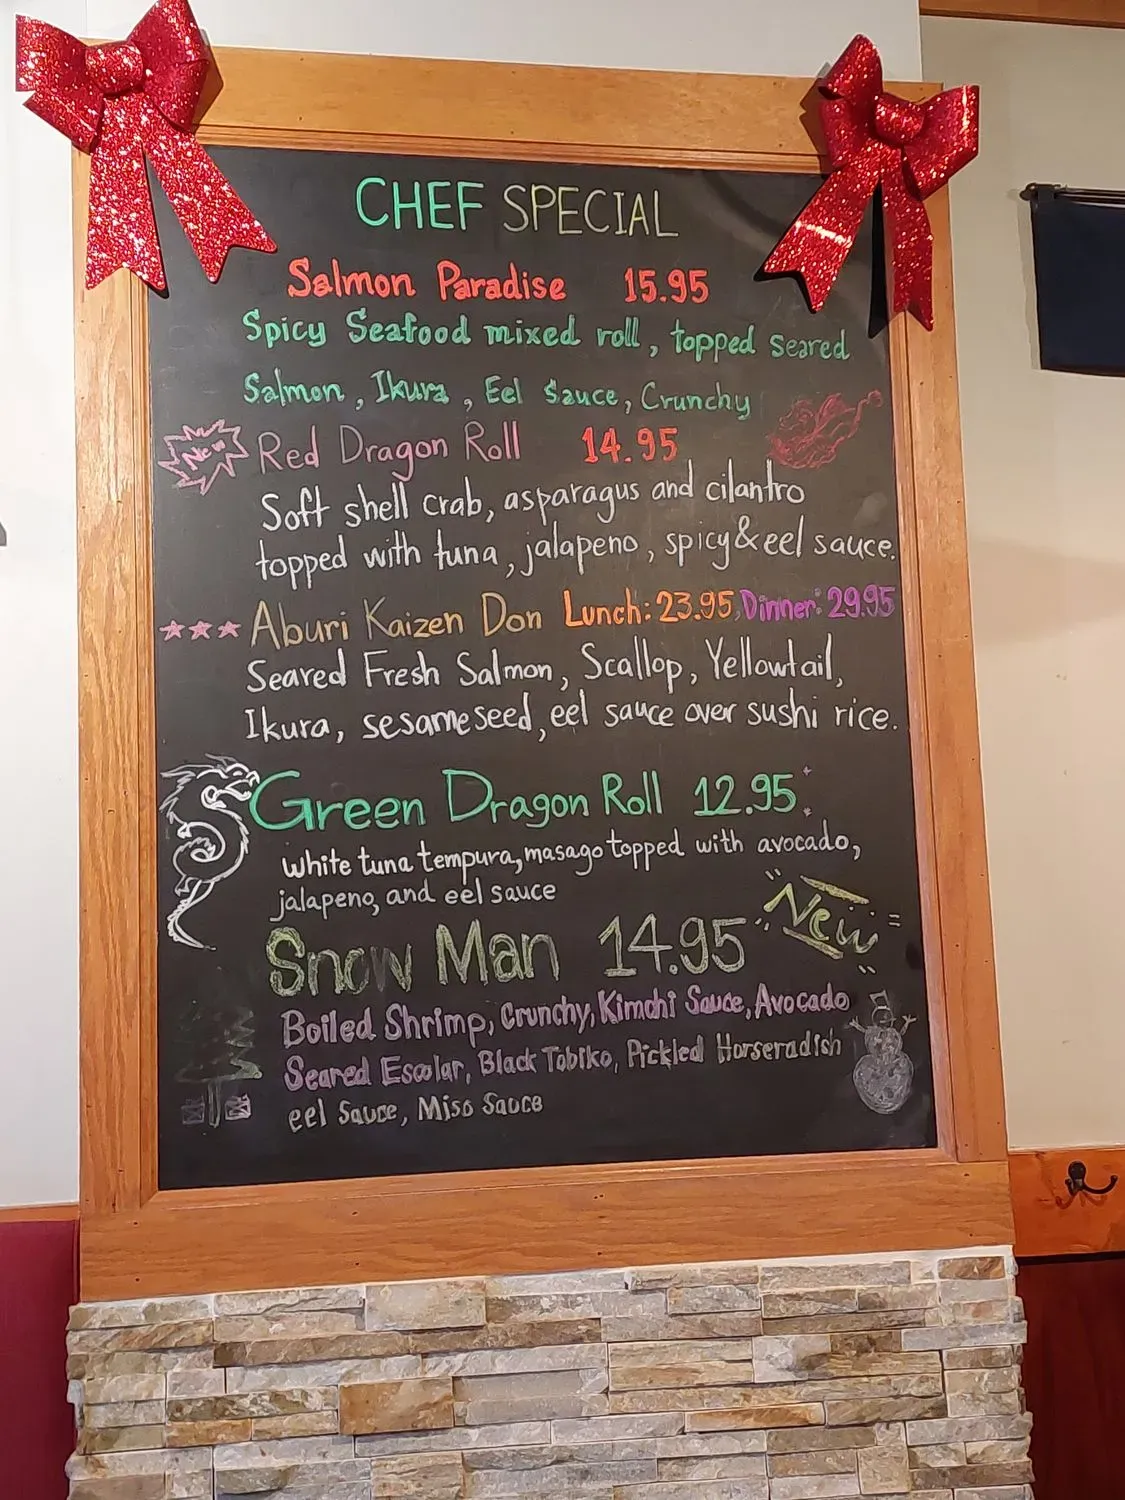 CHEF SPECIAL
Salmon Paradise 15.95
Spicy Seafood mixed roll, topped seared
Salmon, Ikura, Eel Sauce, Crunchy
New Red Dragon Roll 14.95
Soft shell crab, asparagus and cilantro
topped with tuna, jalapeno, spicy & eel sauce.
Aburi Kaizen Don Lunch: 23.95, Dinner: 29.95
Seared Fresh Salmon, Scallop, Yellowtail,
Ikura, sesame seed, eel sauce over sushi rice.
Green Dragon Roll 12.95
white tuna tempura, masago topped with avocado,
jalapeno, and eel sauce
Snow Man 14.95 "New"
Boiled Shrimp, Crunchy, Kimchi Sauce, Avocado
Seared Escolar, Black Tobiko, Pickled Horseradish
eel Sauce, Miso Sauce